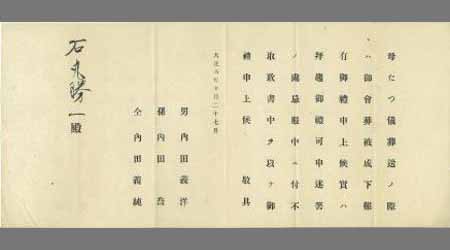 母たつ儀葬送ノ際
ハ御會葬被成下難
有御禮申上候實ハ
拝趨御禮可申述筈
ノ處忌服中ニ付不
取敢書中ヲ以テ御
禮申上候 敬具
大正五年十月二十七日
男 內田義洋
孫 內田
仝 內田義純
石 勝一殿